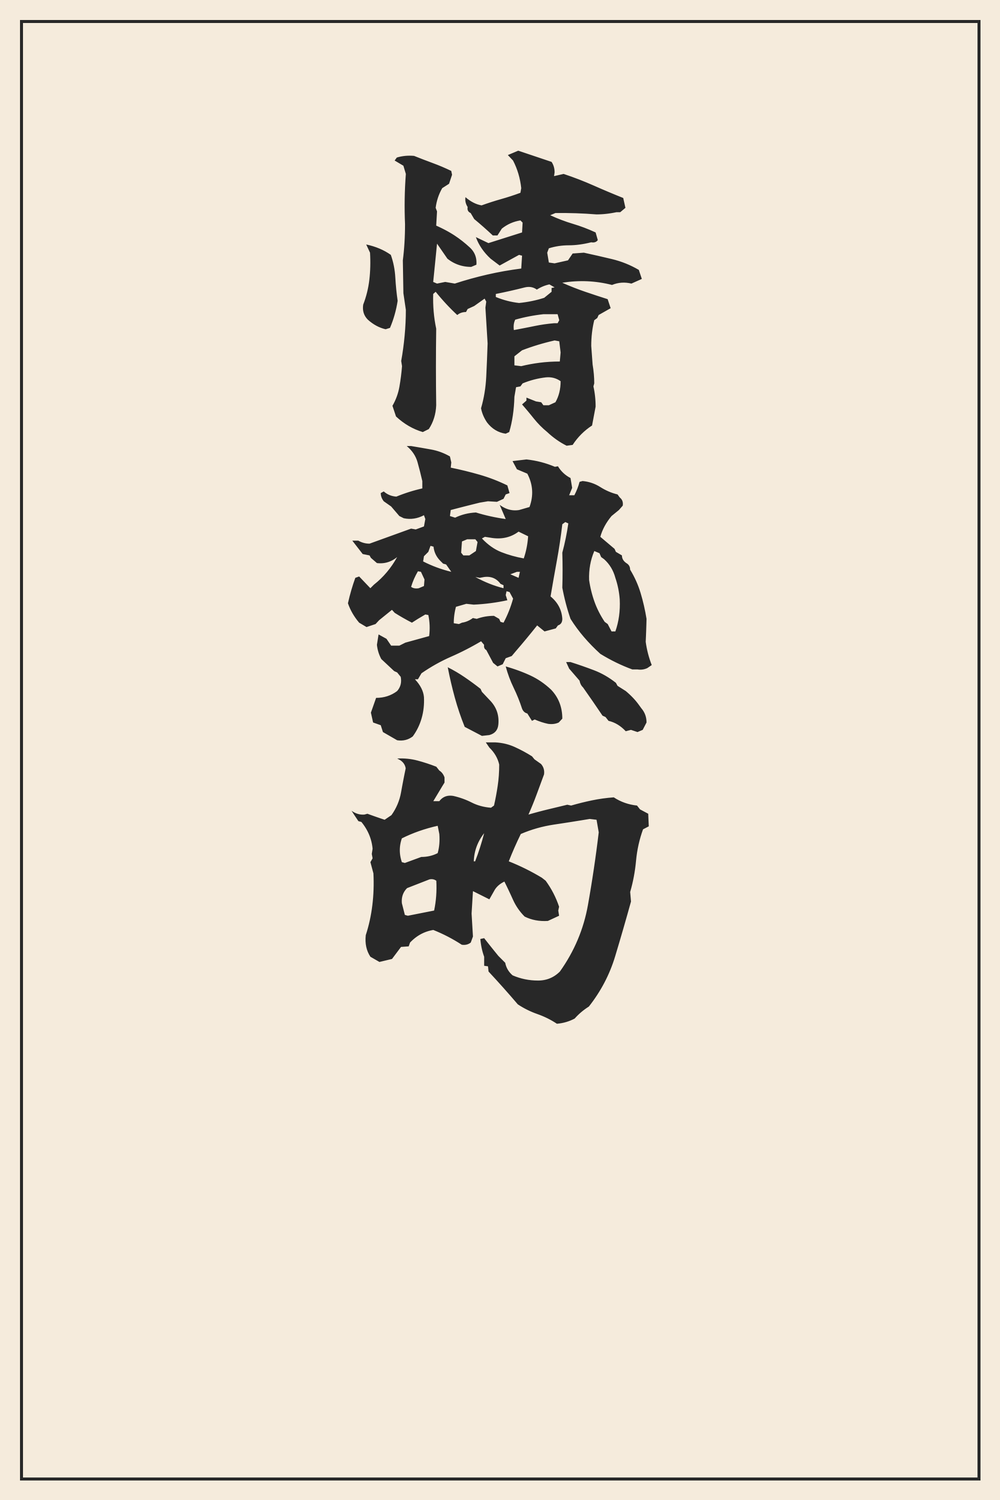 情熱的